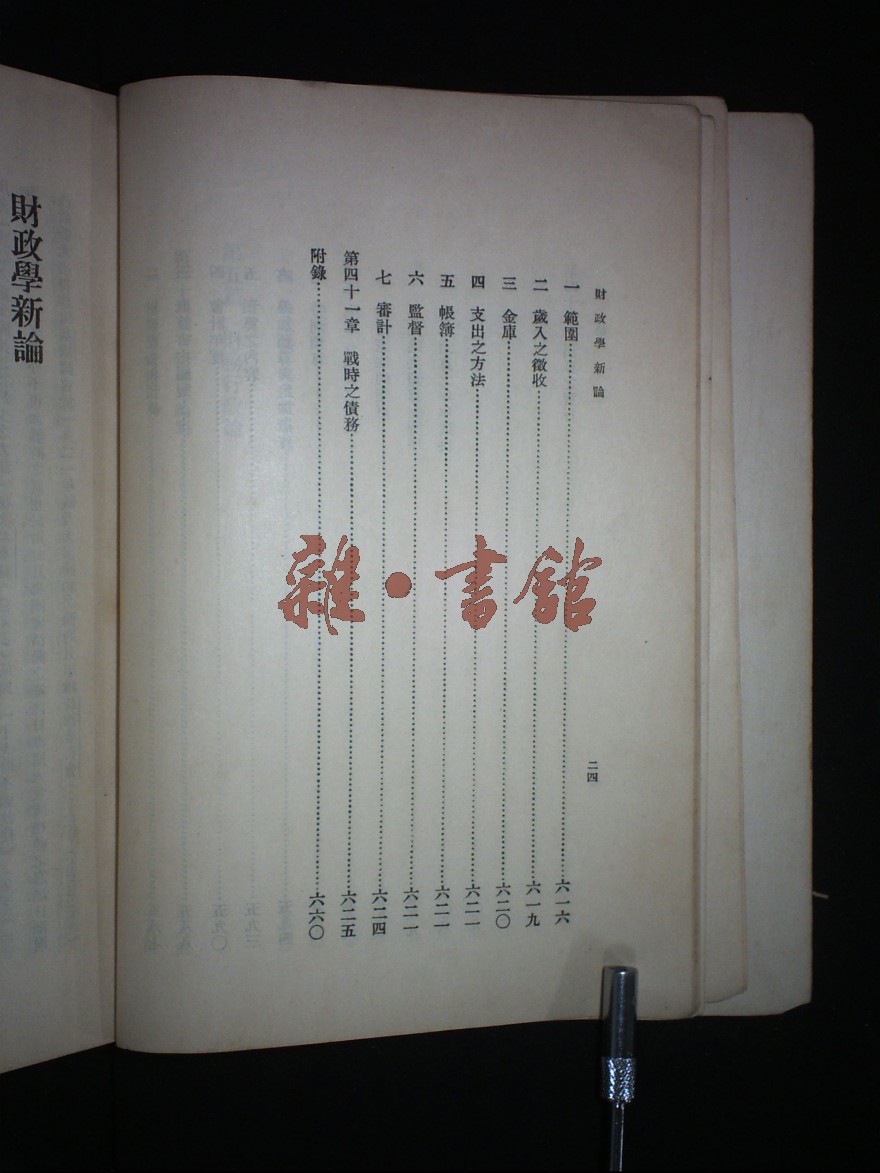 財政學新論
二四
一 範圍…………六一六
二 歲入之徵收…………六一九
三 金庫…………六二〇
四 支出之方法…………六二一
五 帳簿…………六二一
六 監督…………六二一
七 審計…………六二四
第四十一章 戰時之債務…………六二五
附錄…………六六〇
財政學新論
雜·書館